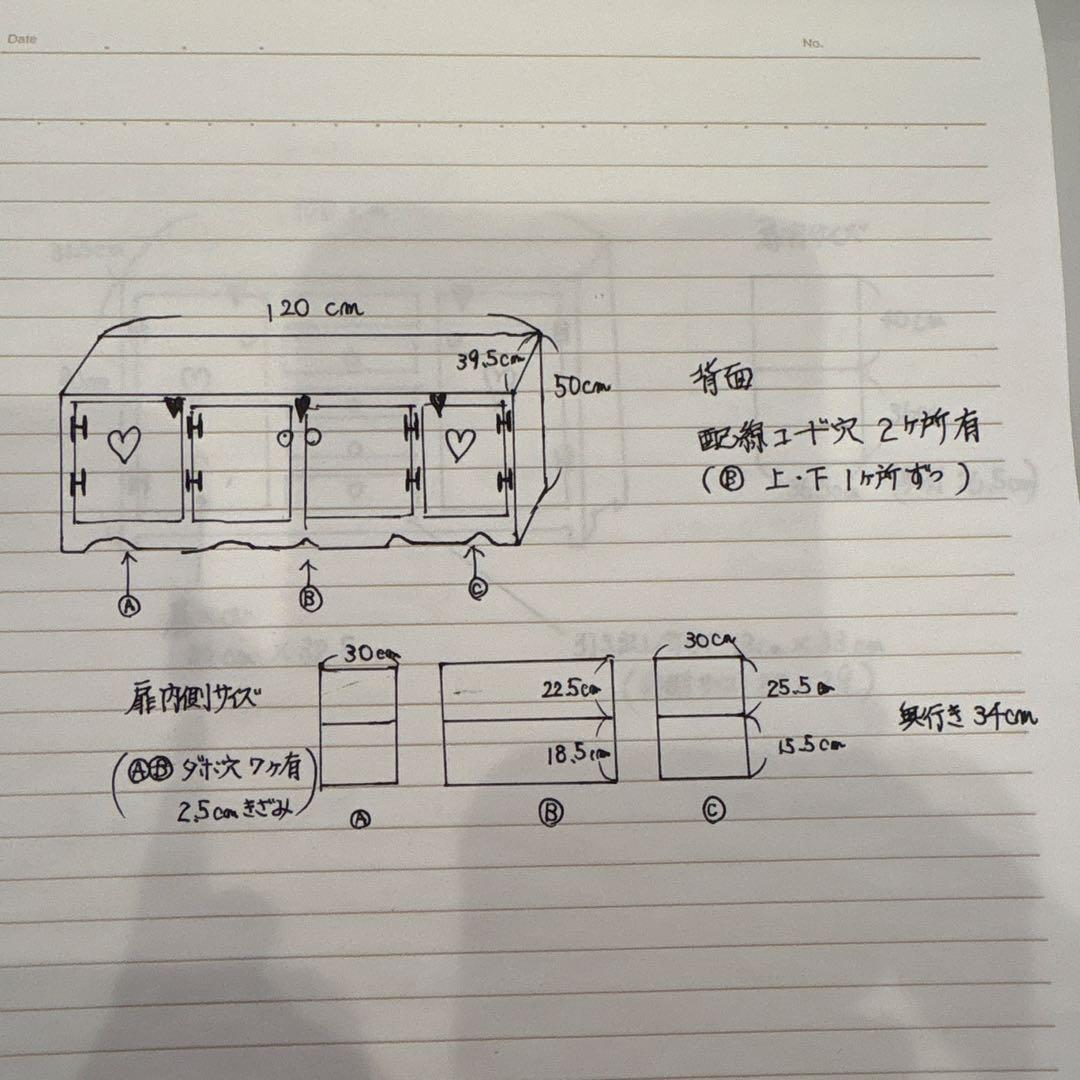 Date
No.
120 cm
39.5cm
50cm
背面
配線コード穴 2ヶ所有
(Ⓑ 上・下 1ヶ所ずつ)
Ⓐ
Ⓑ
Ⓒ
扉内側サイズ
(ⒶⒷ ダボ穴 7ヶ有
2.5cmきざみ)
30cm
Ⓐ
22.5cm
18.5cm
Ⓑ
30cm
25.5cm
15.5cm
Ⓒ
奥行き 34cm